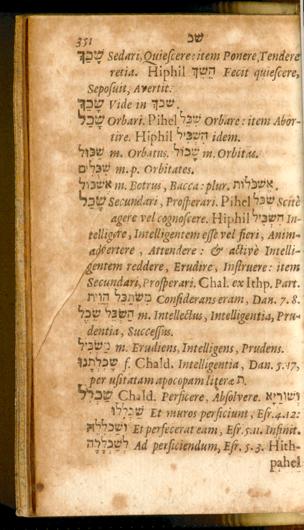 351 שכ
שָׁכַךְ Sedari, Quiescere: item Ponere, Tendere
retia. Hiphil הֵשֵׁךְ Fecit quiescere,
Seposuit, Avertit.
שָׂכַךְ Vide in סכך.
שָׁכַל Orbari. Pihel שִׁכֵּל Orbare: item Abor-
tire. Hiphil הִשְׁכִּיל idem.
שַׁכּוּל m. Orbatus. שְׁכוֹל m. Orbitas.
שִׁכֻּלִים m. p. Orbitates.
אֶשְׁכּוֹל m. Botrus, Bacca: plur. אֶשְׁכֹּלוֹת.
שָׂכַל Secundari, Prosperari. Pihel שִׂכֵּל Scitè
agere vel cognoscere. Hiphil הִשְׂכִּיל In-
telligere, Intelligentem esse vel fieri, Anim-
advertere, Attendere: & activè Intelli-
gentem reddere, Erudire, Instruere: item
Secundari, Prosperari. Chal. ex Ithp. Part.
מִשְׂתַּכַּל הֲוֵית Considerans eram, Dan. 7. 8.
שֵׂכֶל m. Intellectus, Intelligentia, Pru-
dentia, Successus.
מַשְׂכִּיל m. Erudiens, Intelligens, Prudens.
f. Chald. Intelligentia, Dan. 5. 17,
per usitatam apocopam literæ ת.
שַׁכְלֵל Chald. Perficere, Absolvere. וְשׁוּרַיָּא
שַׁכְלִלוּ Et muros perficiunt, Esr. 4. 12:
וְשַׁכְלְלֵהּ Et perfecerat eam, Esr. 5. 11. Infinit.
לְשַׁכְלָלָה Ad perficiendum, Esr. 5. 3. Hith-
pahel